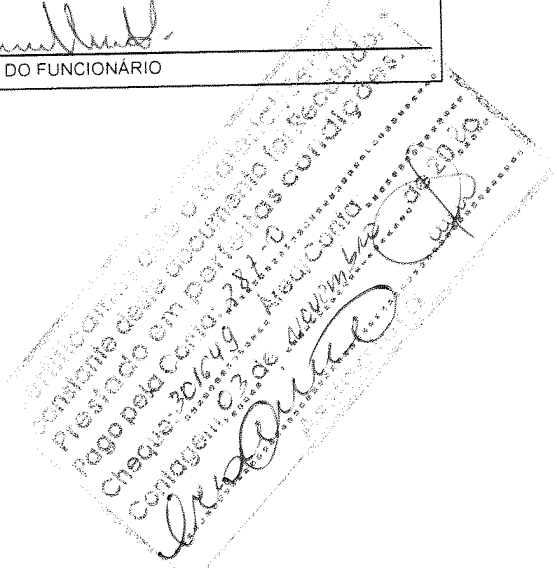 DO FUNCIONÁRIO
que o material/serviço
constante deste documento foi Recebido/
Prestado em perfeitas condições.
Pago pela Conta: 287-0
Cheque: 301649 Ateu, Conta
Contagem, 03 de novembro de 2020.